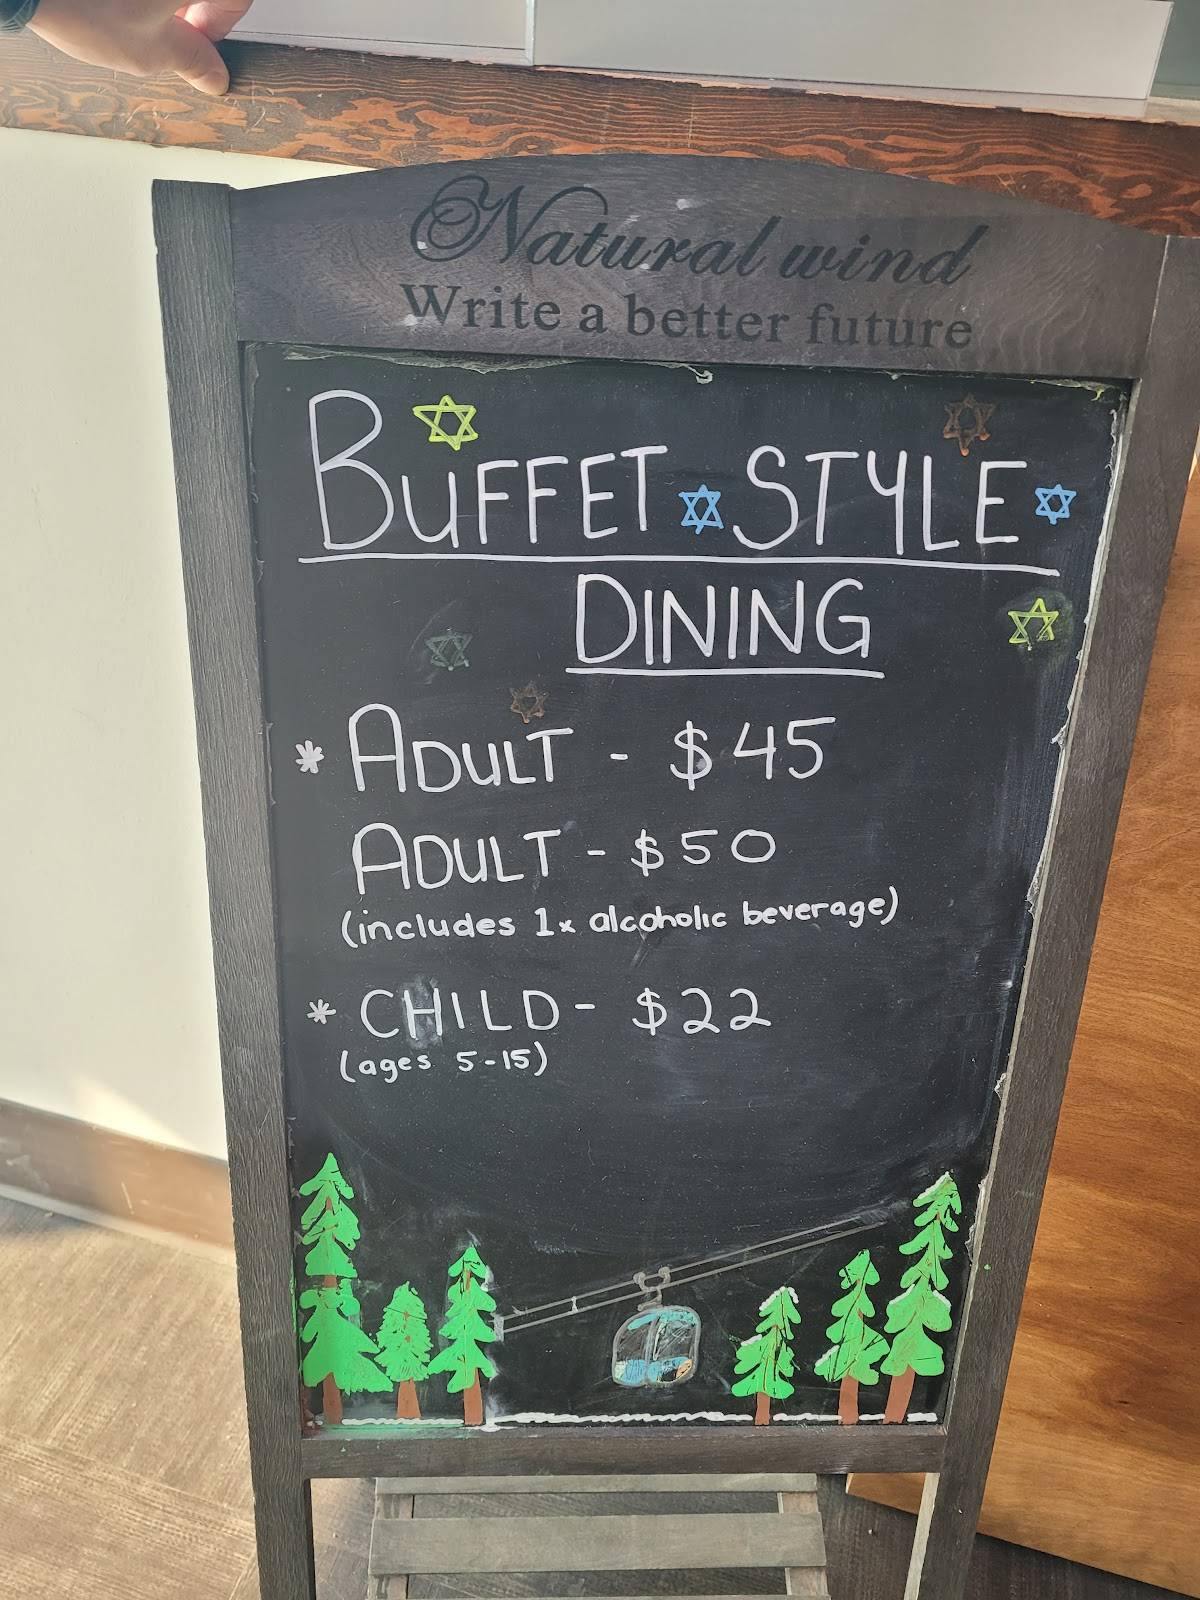 Natural wind
Write a better future
BUFFET STYLE
DINING
* ADULT - $45
ADULT - $50
(includes 1x alcoholic beverage)
* CHILD - $22
(ages 5-15)